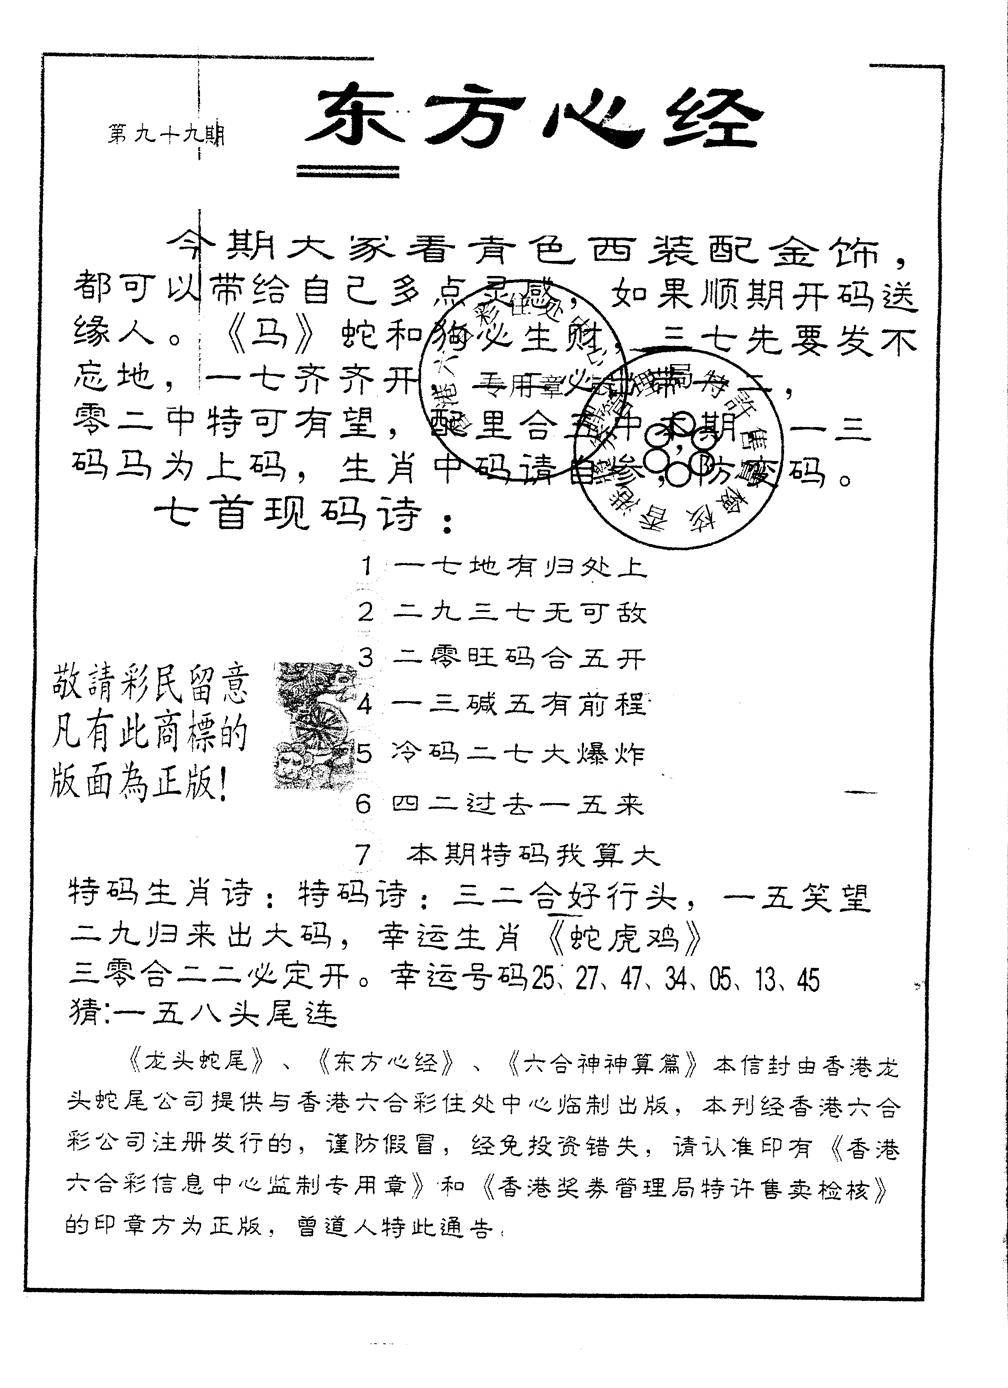 第九十九期
东方心经
今期大家看青色西装配金饰，
都可以带给自己多点灵感，如果顺期开码送
缘人。《马》蛇和狗必生财，三七先要发不
忘地，一七齐齐开，二二必出带一二，
零二中特可有望，配里合五中本期，一三
码马为上码，生肖中码请自参，防 码。
七首现码诗：
1 一七地有归处上
2 二九三七无可敌
3 二零旺码合五开
4 一三碱五有前程
5 冷码二七大爆炸
6 四二过去一五来
7 本期特码我算大
敬請彩民留意
凡有此商標的
版面為正版！
特码生肖诗：特码诗：三二合好行头，一五笑望
二九归来出大码，幸运生肖《蛇虎鸡》
三零合二二必定开。幸运号码25、27、47、34、05、13、45
猜：一五八头尾连
《龙头蛇尾》、《东方心经》、《六合神神算篇》本信封由香港龙
头蛇尾公司提供与香港六合彩住处中心临制出版，本刊经香港六合
彩公司注册发行的，谨防假冒，经免投资错失，请认准印有《香港
六合彩信息中心监制专用章》和《香港奖券管理局特许售卖检核》
的印章方为正版，曾道人特此通告。
香港六合彩住处中心
专用章
香港獎券管理局特許售賣檢核